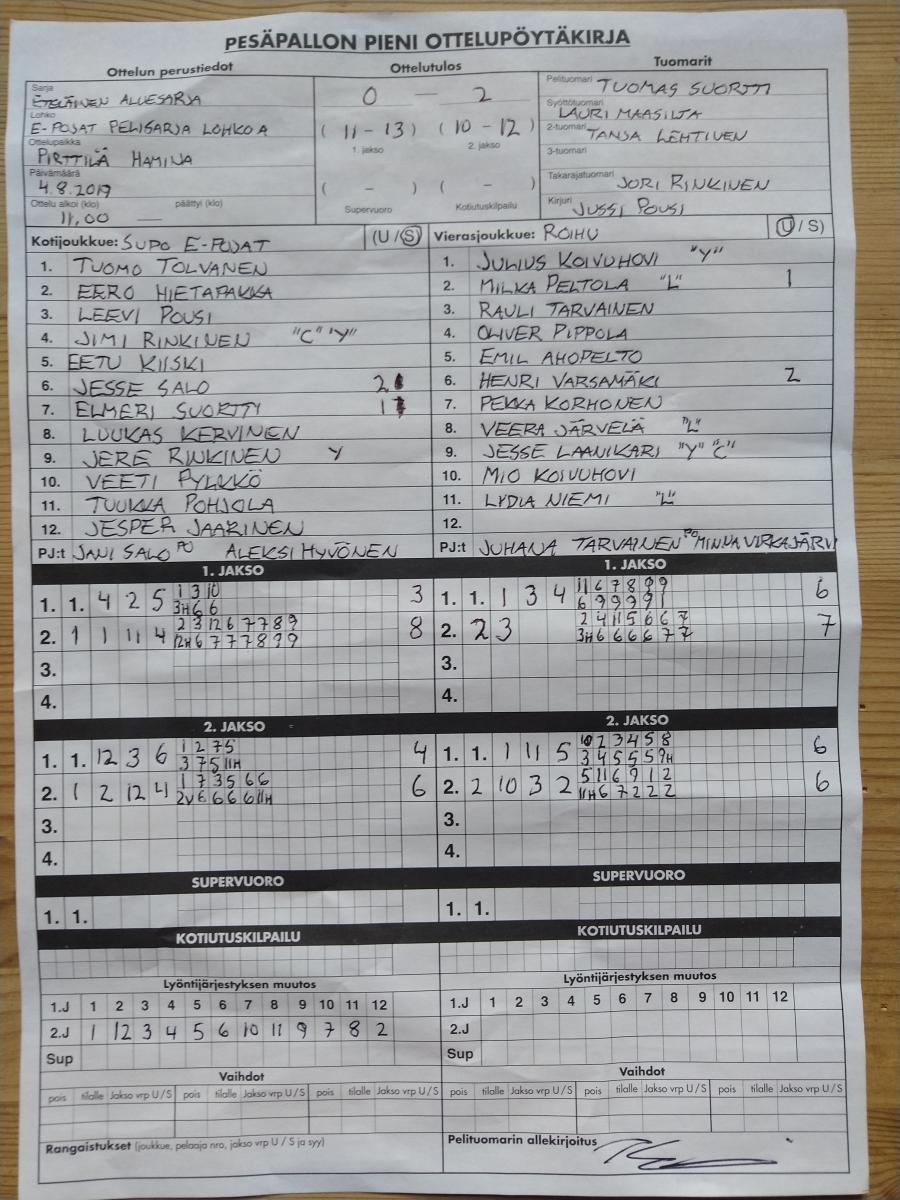 PESÄPALLON PIENI OTTELUPÖYTÄKIRJA
Ottelun perustiedot Ottelutulos Tuomarit
Sarja ETELÄINEN ALUESARJA
Lohko E-POJAT PELISARJA LOHKO A
Ottelupaikka PIRTTILÄ HAMINA
Päivämäärä 4.8.2019
Ottelu alkoi (klo) 11,00 — päättyi (klo)
0 — 2
(11 - 13) (10 - 12)
1. jakso 2. jakso
( - ) ( - )
Supervuoro Kotiutuskilpailu
Pelituomari TUOMAS SUORTTI
Syöttötuomari LAURI MAASILTA
2-tuomari TANJA LEHTINEN
3-tuomari
Takarajatuomari JORI RINKINEN
Kirjuri JUSSI POUSI
Kotijoukkue: SUPO E-POJAT (U / S)
1. TUOMO TOLVANEN
2. EERO HIETAPAKKA
3. LEEVI POUSI
4. JIMI RINKINEN "C" "Y"
5. EETU KIISKI
6. JESSE SALO 2
7. ELMERI SUORTTI 1
8. LUUKAS KERVINEN
9. JERE RINKINEN Y
10. VEETI PYLKKÖ
11. TUUKKA POHJOLA
12. JESPER JAARINEN
PJ:t JANI SALO PO ALEKSI HYVÖNEN
Vierasjoukkue: ROIHU (U / S)
1. JULIUS KOIVUHOVI "Y"
2. MILKA PELTOLA "L" 1
3. RAULI TARVAINEN
4. OLIVER PIPPOLA
5. EMIL AHOPELTO
6. HENRI VARSAMÄKI 2
7. PEKKA KORHONEN
8. VEERA JÄRVELÄ "L"
9. JESSE LAANIKARI "Y" "C"
10. MIO KOIVUHOVI
11. LYDIA NIEMI "L"
12.
PJ:t JUHANA TARVAINEN PO MINNA VIRKAJÄRVI
1. JAKSO
1. 1. 4 2 5 1 3 10 3
3H 6 6
2. 1 1 11 4 2 3 12 6 7 7 8 9 8
12H 6 7 7 7 8 9 9
3.
4.
1. JAKSO
1. 1. 1 3 4 11 6 7 8 9 9 6
6 9 9 9 9 1
2. 2 3 2 4 11 5 6 6 7 7
3H 6 6 6 6 7 7
3.
4.
2. JAKSO
1. 1. 12 3 6 1 2 7 5 4
3 7 5 11H
2. 1 2 12 4 1 7 3 5 6 6 6
2V 6 6 6 6 11H
3.
4.
2. JAKSO
1. 1. 1 11 5 10 2 3 4 5 8 6
3 4 5 5 5 9H
2. 2 10 3 2 5 11 6 9 1 2 6
11H 6 7 2 2 2
3.
4.
SUPERVUORO
1. 1.
SUPERVUORO
1. 1.
KOTIUTUSKILPAILU
KOTIUTUSKILPAILU
Lyöntijärjestyksen muutos
1.J 1 2 3 4 5 6 7 8 9 10 11 12
2.J 1 12 3 4 5 6 10 11 9 7 8 2
Sup
Lyöntijärjestyksen muutos
1.J 1 2 3 4 5 6 7 8 9 10 11 12
2.J
Sup
Vaihdot
pois tilalle Jakso vrp U / S pois tilalle Jakso vrp U / S pois tilalle Jakso vrp U / S
Vaihdot
pois tilalle Jakso vrp U / S pois tilalle Jakso vrp U / S pois tilalle Jakso vrp U / S
Rangaistukset (joukkue, pelaaja nro, jakso vrp U / S ja syy)
Pelituomarin allekirjoitus